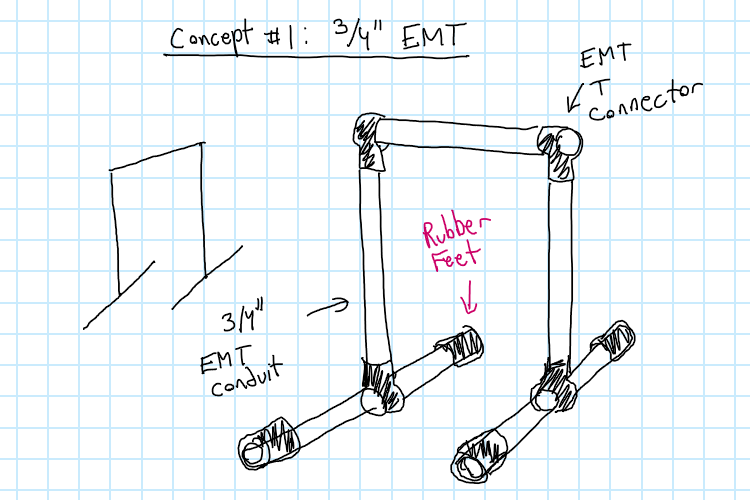 Concept #1: 3/4" EMT
EMT
T
Connector
Rubber
Feet
3/4"
EMT
conduit